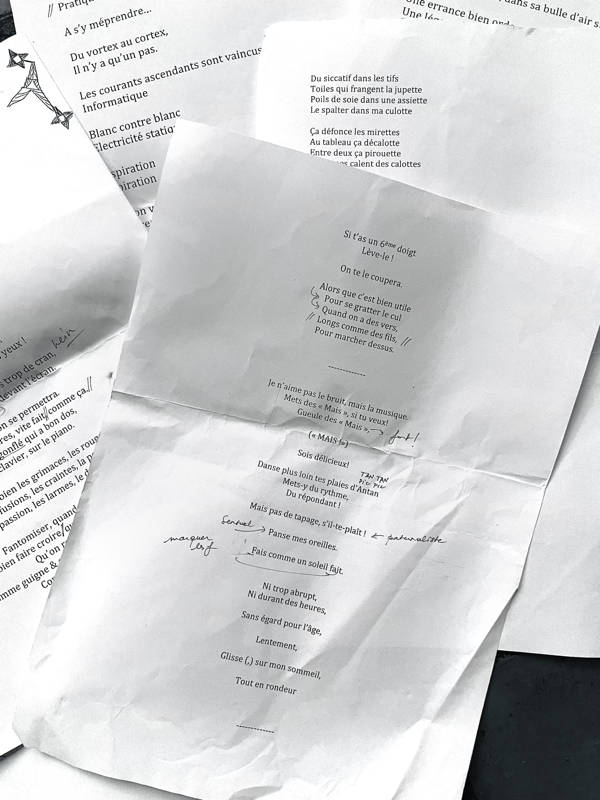 // Pratiq
A s'y méprendre...
Du vortex au cortex,
Il n'y a qu'un pas.
Les courants ascendants sont vaincus
Informatique
Blanc contre blanc
Électricité statiq
spiration
piration
Une errance bien ord
dans sa bulle d'air s
Du siccatif dans les tifs
Toiles qui frangent la jupette
Poils de soie dans une assiette
Le spalter dans ma culotte
Ça défonce les mirettes
Au tableau ça décalotte
Entre deux ça pirouette
calent des calottes
Si t'as un 6ème doigt
Lève-le !
On te le coupera.
Alors que c'est bien utile
Pour se gratter le cul
Quand on a des vers,
// Longs comme des fils, //
Pour marcher dessus.
------------
Je n'aime pas le bruit, mais la musique.
Mets des « Mais », si tu veux!
Gueule des « Mais », → fort!
(« MAIS !»)
Sois délicieux!
TAN TAN
Danse plus loin tes plaies d'Antan
Mets-y du rythme,
Du répondant !
Mais pas de tapage, s'il-te-plaît ! ← paternaliste
Sensuel
Panse mes oreilles.
marquer
Fais comme un soleil fait.
Ni trop abrupt,
Ni durant des heures,
Sans égard pour l'âge,
Lentement,
Glisse (,) sur mon sommeil,
Tout en rondeur
------------
yeux !
trop de cran, hein
devant l'écran.
an se permettra.
res, vite fait//comme ça.//
gonflé qui a bon dos,
clavier, sur le piano.
bien les grimaces, les roug
fusions, les craintes, la p
passion, les larmes, le d
Fantomiser, quand
bien faire croire/qu
Qu'on
mme guigne &
Co